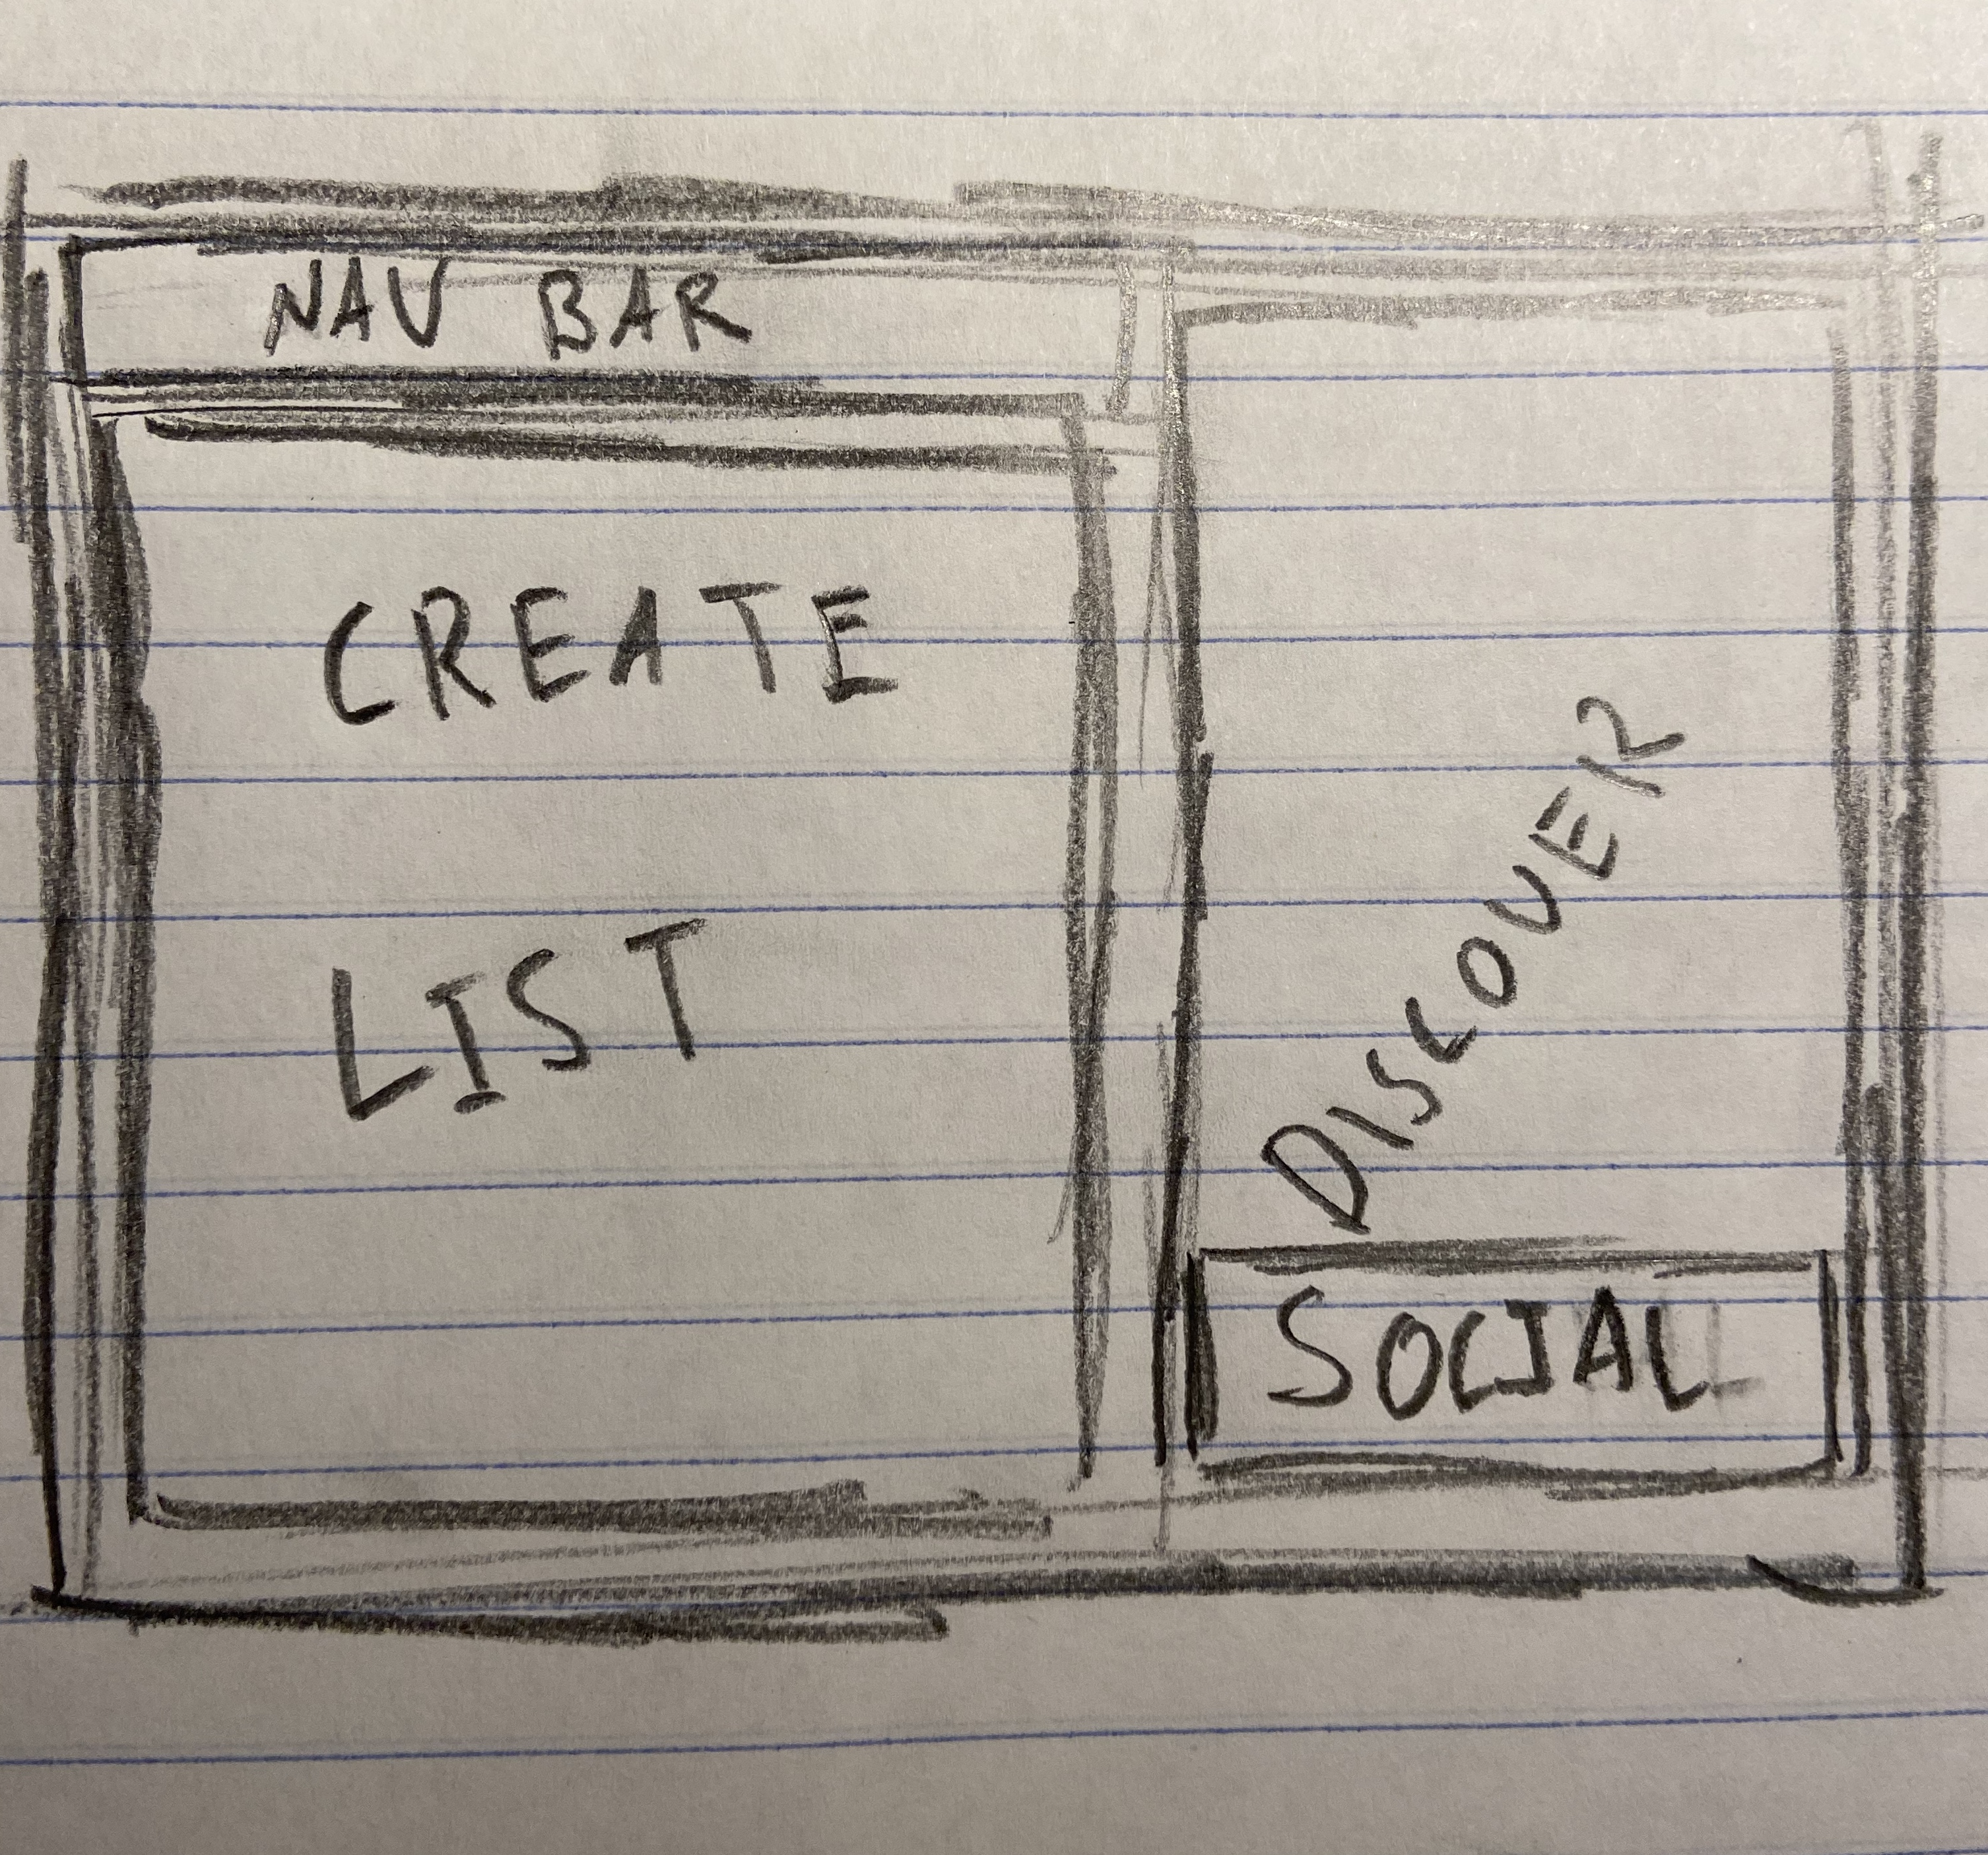 NAV BAR
CREATE
LIST
DISCOVER
SOCIAL